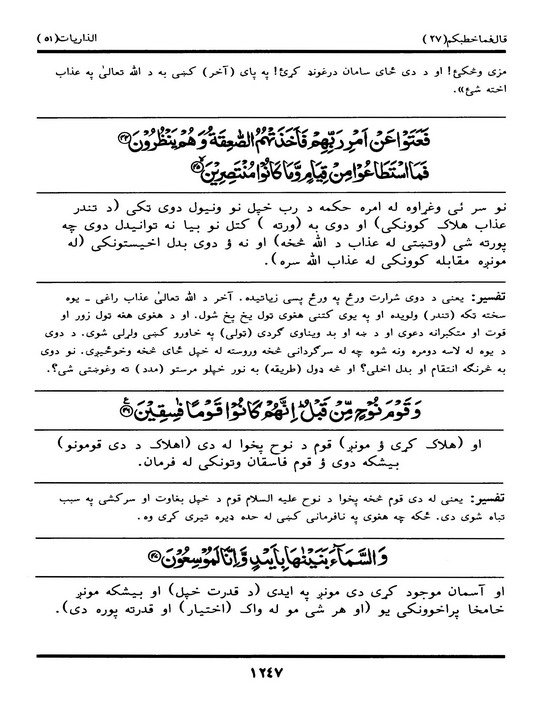 قال فما خطبکم (۲۷)
الذاریات (۵۱)
مزې وڅکئ! او د دې ځای سامان درغونډ کړئ! په پای (آخر) کښې به د الله تعالیٰ په عذاب
اخته شئ».
فَعَتَوْا عَنْ اَمْرِ رَبِّهِمْ فَاَخَذَتْهُمُ الصّٰعِقَةُ وَ هُمْ يَنْظُرُوْنَ ﴿۴۴﴾
فَمَا اسْتَطَاعُوْا مِنْ قِيَامٍ وَّمَا كَانُوْا مُنْتَصِرِيْنَ ﴿۴۵﴾
نو سر ئې وغړاوه له امره حکمه د رب خپل نو ونیول دوی تکې (د تندر
عذاب هلاک کوونکې) او دوی به (ورته) کتل نو بیا نه توانیدل دوی چه
پورته شې (وتښتي له عذاب د الله څخه) او نه ؤ دوی بدل اخیستونکي (له
مونږه مقابله کوونکې له عذاب الله سره).
تفسیر: یعنې د دوی شرارت ورځ په ورځ پسې زیاتیده. آخر د الله تعالیٰ عذاب راغې ـ یوه
سخته تکه (تندر) ولویده او په یوې کتنې هغوی ټول یخ پخ شول. او د هغوی هغه ټول زور او
قوت او متکبرانه دعوې او د ښه او بد ویناوې گردې (ټولې) په خاورو کښې ولړلې شوې. د دوی
د یوه له لاسه دومره ونه شوه چه له سرگردانۍ څخه وروسته له خپل ځای څخه وخوځیږي. نو دوی
به څرنگه انتقام او بدل اخلې؟ او څه ډول (طریقه) به نور خپلو مرستو (مدد) ته وغوښتې شي؟.
وَ قَوْمَ نُوْحٍ مِّنْ قَبْلُ ؕ اِنَّهُمْ كَانُوْا قَوْمًا فٰسِقِيْنَ ﴿۴۶﴾
او (هلاک کړې ؤ مونږ) قوم د نوح پخوا له دې (اهلاک د دې قومونو)
بیشکه دوی ؤ قوم فاسقان وتونکي له فرمان.
تفسیر: یعنې له دې قوم څخه پخوا د نوح علیه السلام قوم د خپل بغاوت او سرکشۍ په سبب
تباه شوې دی. ځکه چه هغوی په نافرمانۍ کښې له حده ډیره تیرې کړې وه.
وَ السَّمَآءَ بَنَيْنٰهَا بِاَيْىدٍ وَّ اِنَّا لَمُوْسِعُوْنَ ﴿۴۷﴾
او آسمان موجود کړې دی مونږ په ایدي (د قدرت خپل) او بیشکه مونږ
خامخا پراخوونکي یو (او هر شي مو له واک (اختیار) او قدرته پوره دی).
۱۲۴۷